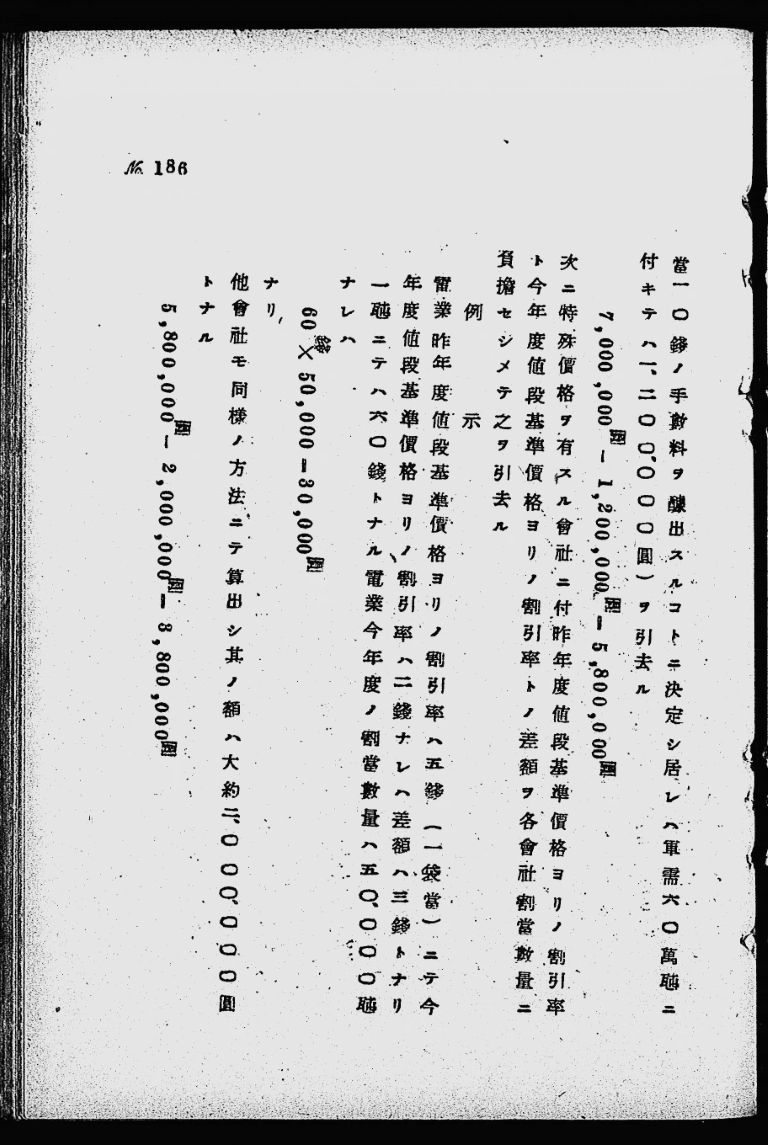 No. 186
當一〇錢ノ手數料ヲ醵出スルコトニ決定シ居レハ軍需六〇萬瓲ニ
付キテハ一、二〇〇、〇〇〇圓）ヲ引去ル
7,000,000圓－1,200,000圓＝5,800,000圓
次ニ特殊價格ヲ有スル會社ニ付昨年度値段基準價格ヨリノ割引率
ト今年度値段基準價格ヨリノ割引率トノ差額ヲ各會社割當數量ニ
負擔セシメテ之ヲ引去ル
例示
電業昨年度値段基準價格ヨリノ割引率ハ五錢（一袋當）ニテ今
年度値段基準價格ヨリノ割引率ハ二錢ナレハ差額ハ三錢トナリ
一瓲ニテハ六〇錢トナル電業今年度ノ割當數量ハ五〇、〇〇〇瓲
ナレハ
60錢×50,000＝30,000圓
ナリ
他會社モ同樣ノ方法ニテ算出シ其ノ額ハ大約二、〇〇〇、〇〇〇圓
トナル
5,800,000圓－2,000,000圓＝3,800,000圓